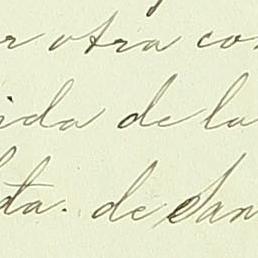 r otra co
ida de la
ta. de San